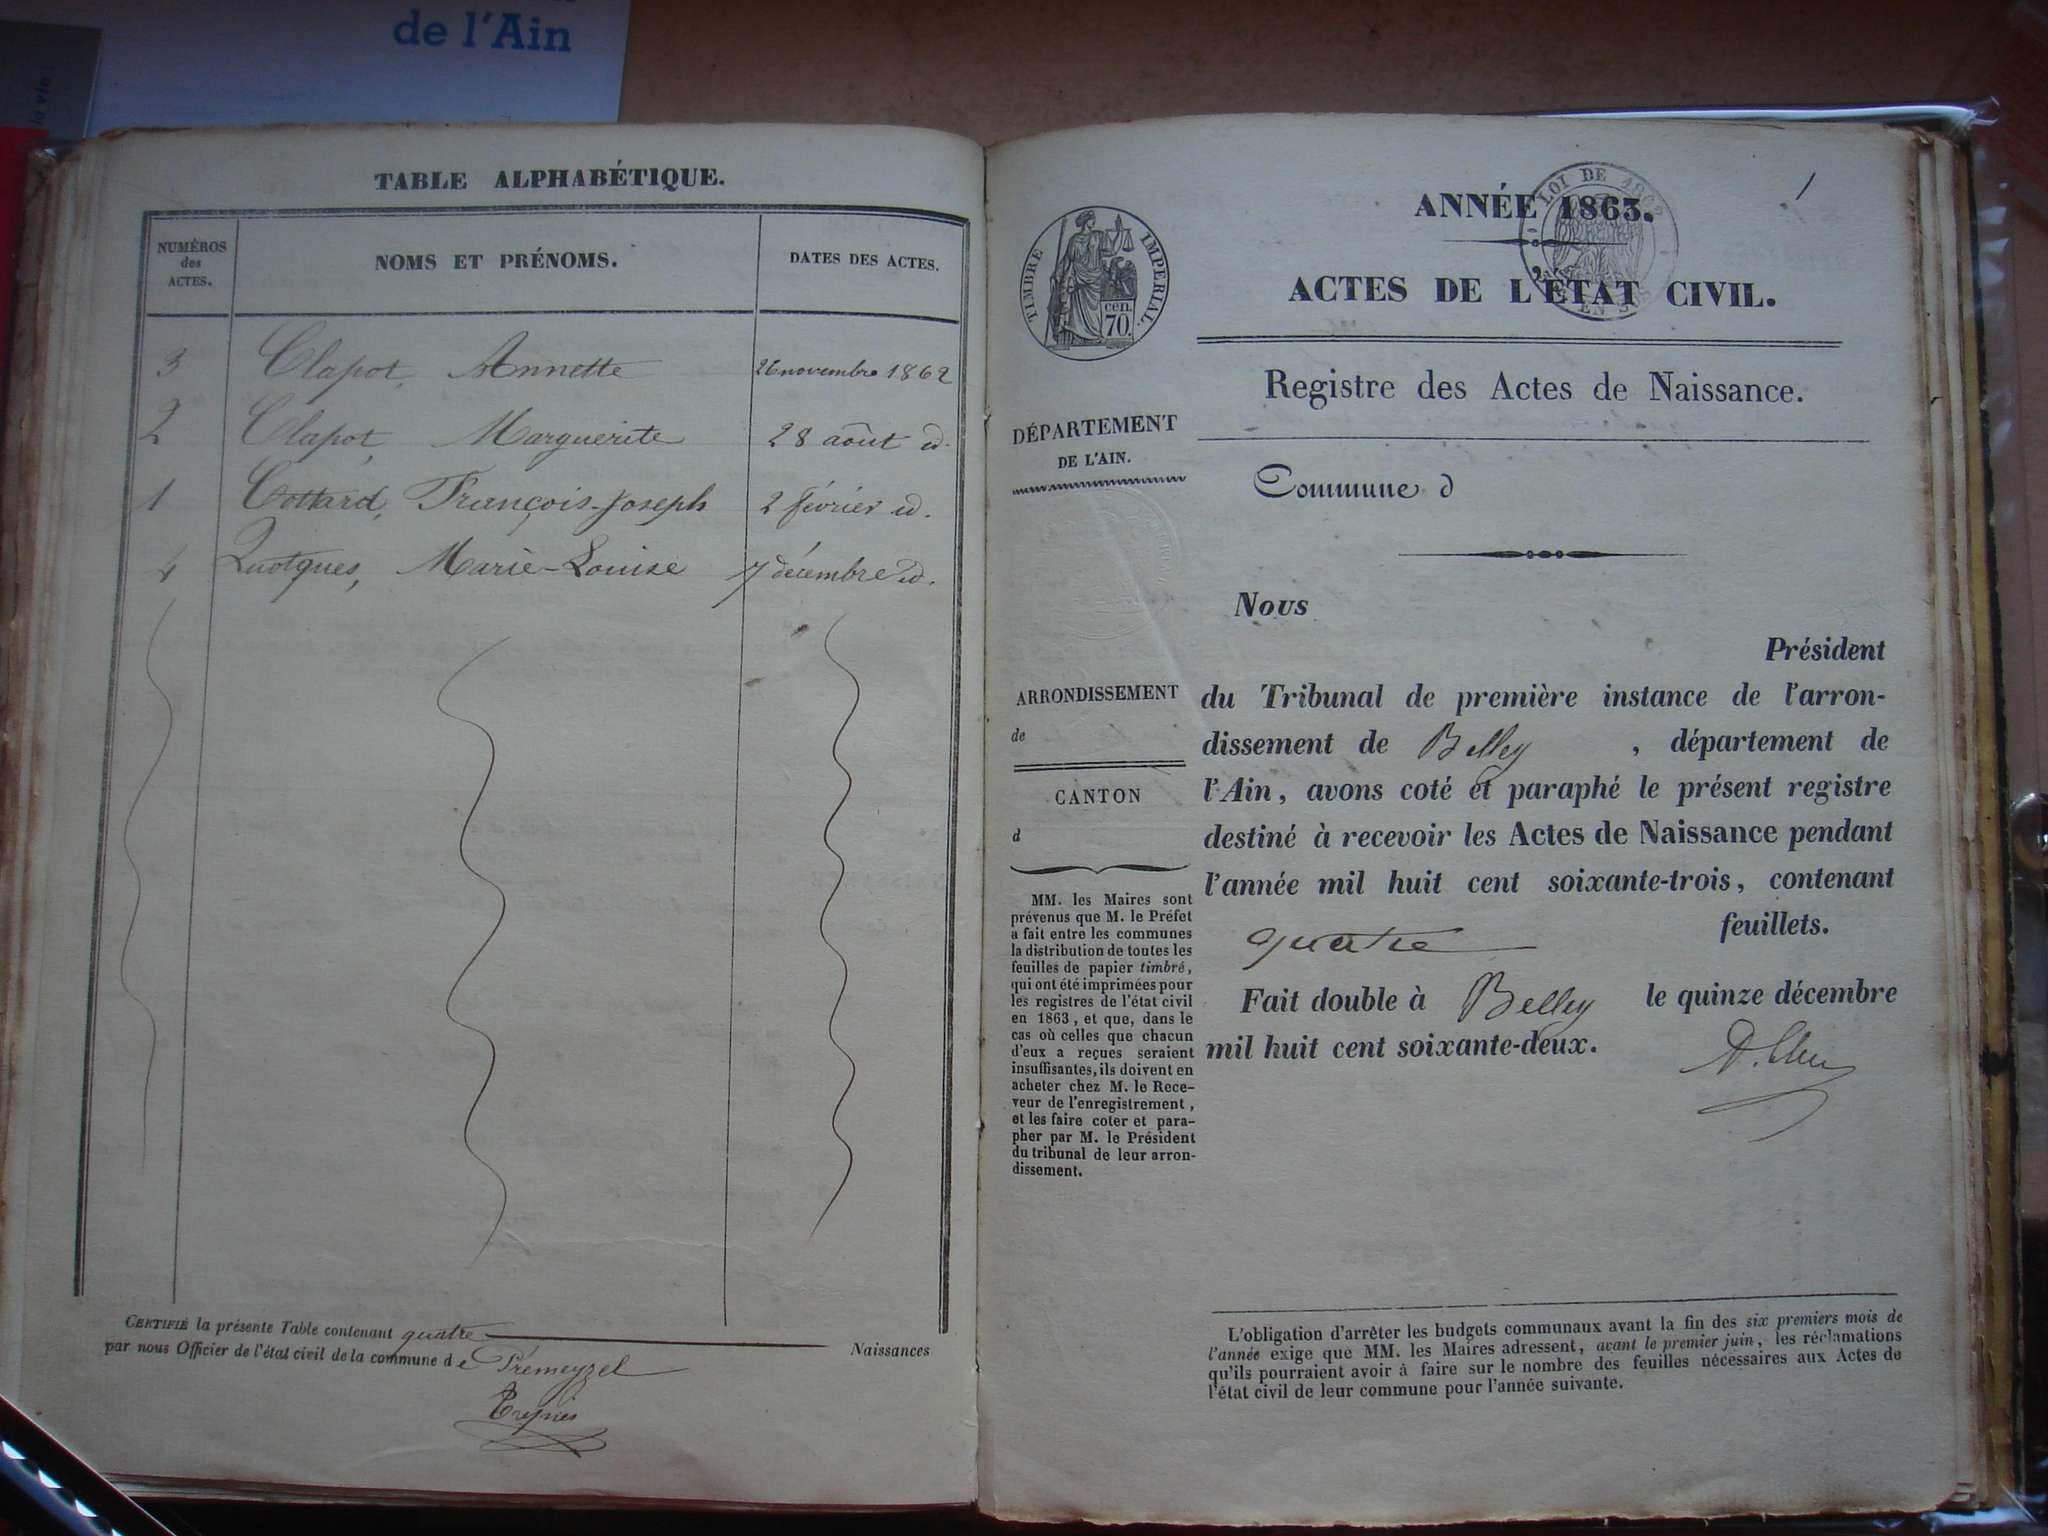 de l'Ain
la vie
TABLE ALPHABÉTIQUE.
NUMÉROS
des
ACTES.
NOMS ET PRÉNOMS.
DATES DES ACTES.
3 Clapot, Annette 26 novembre 1862
2 Clapot, Marguerite 28 août id.
1 Cottard, François-Joseph 2 février id.
4 Marie-Louise 7 décembre id.
CERTIFIÉ la présente Table contenant quatre Naissances
par nous Officier de l'état civil de la commune de Prémeyzel
1
ANNÉE 1863.
LOI DE
TIMBRE IMPÉRIAL.
cen.
70.
ACTES DE L'ÉTAT CIVIL.
Registre des Actes de Naissance.
DÉPARTEMENT
DE L'AIN.
Commune d
Nous
Président
ARRONDISSEMENT
de
CANTON
d
du Tribunal de première instance de l'arron-
dissement de Belley , département de
l'Ain, avons coté et paraphé le présent registre
destiné à recevoir les Actes de Naissance pendant
l'année mil huit cent soixante-trois, contenant
quatre feuillets.
Fait double à Belley le quinze décembre
mil huit cent soixante-deux.
MM. les Maires sont
prévenus que M. le Préfet
a fait entre les communes
la distribution de toutes les
feuilles de papier timbré,
qui ont été imprimées pour
les registres de l'état civil
en 1863, et que, dans le
cas où celles que chacun
d'eux a reçues seraient
insuffisantes, ils doivent en
acheter chez M. le Rece-
veur de l'enregistrement,
et les faire coter et para-
pher par M. le Président
du tribunal de leur arron-
dissement.
L'obligation d'arrêter les budgets communaux avant la fin des six premiers mois de
l'année exige que MM. les Maires adressent, avant le premier juin, les réclamations
qu'ils pourraient avoir à faire sur le nombre des feuilles nécessaires aux Actes de
l'état civil de leur commune pour l'année suivante.